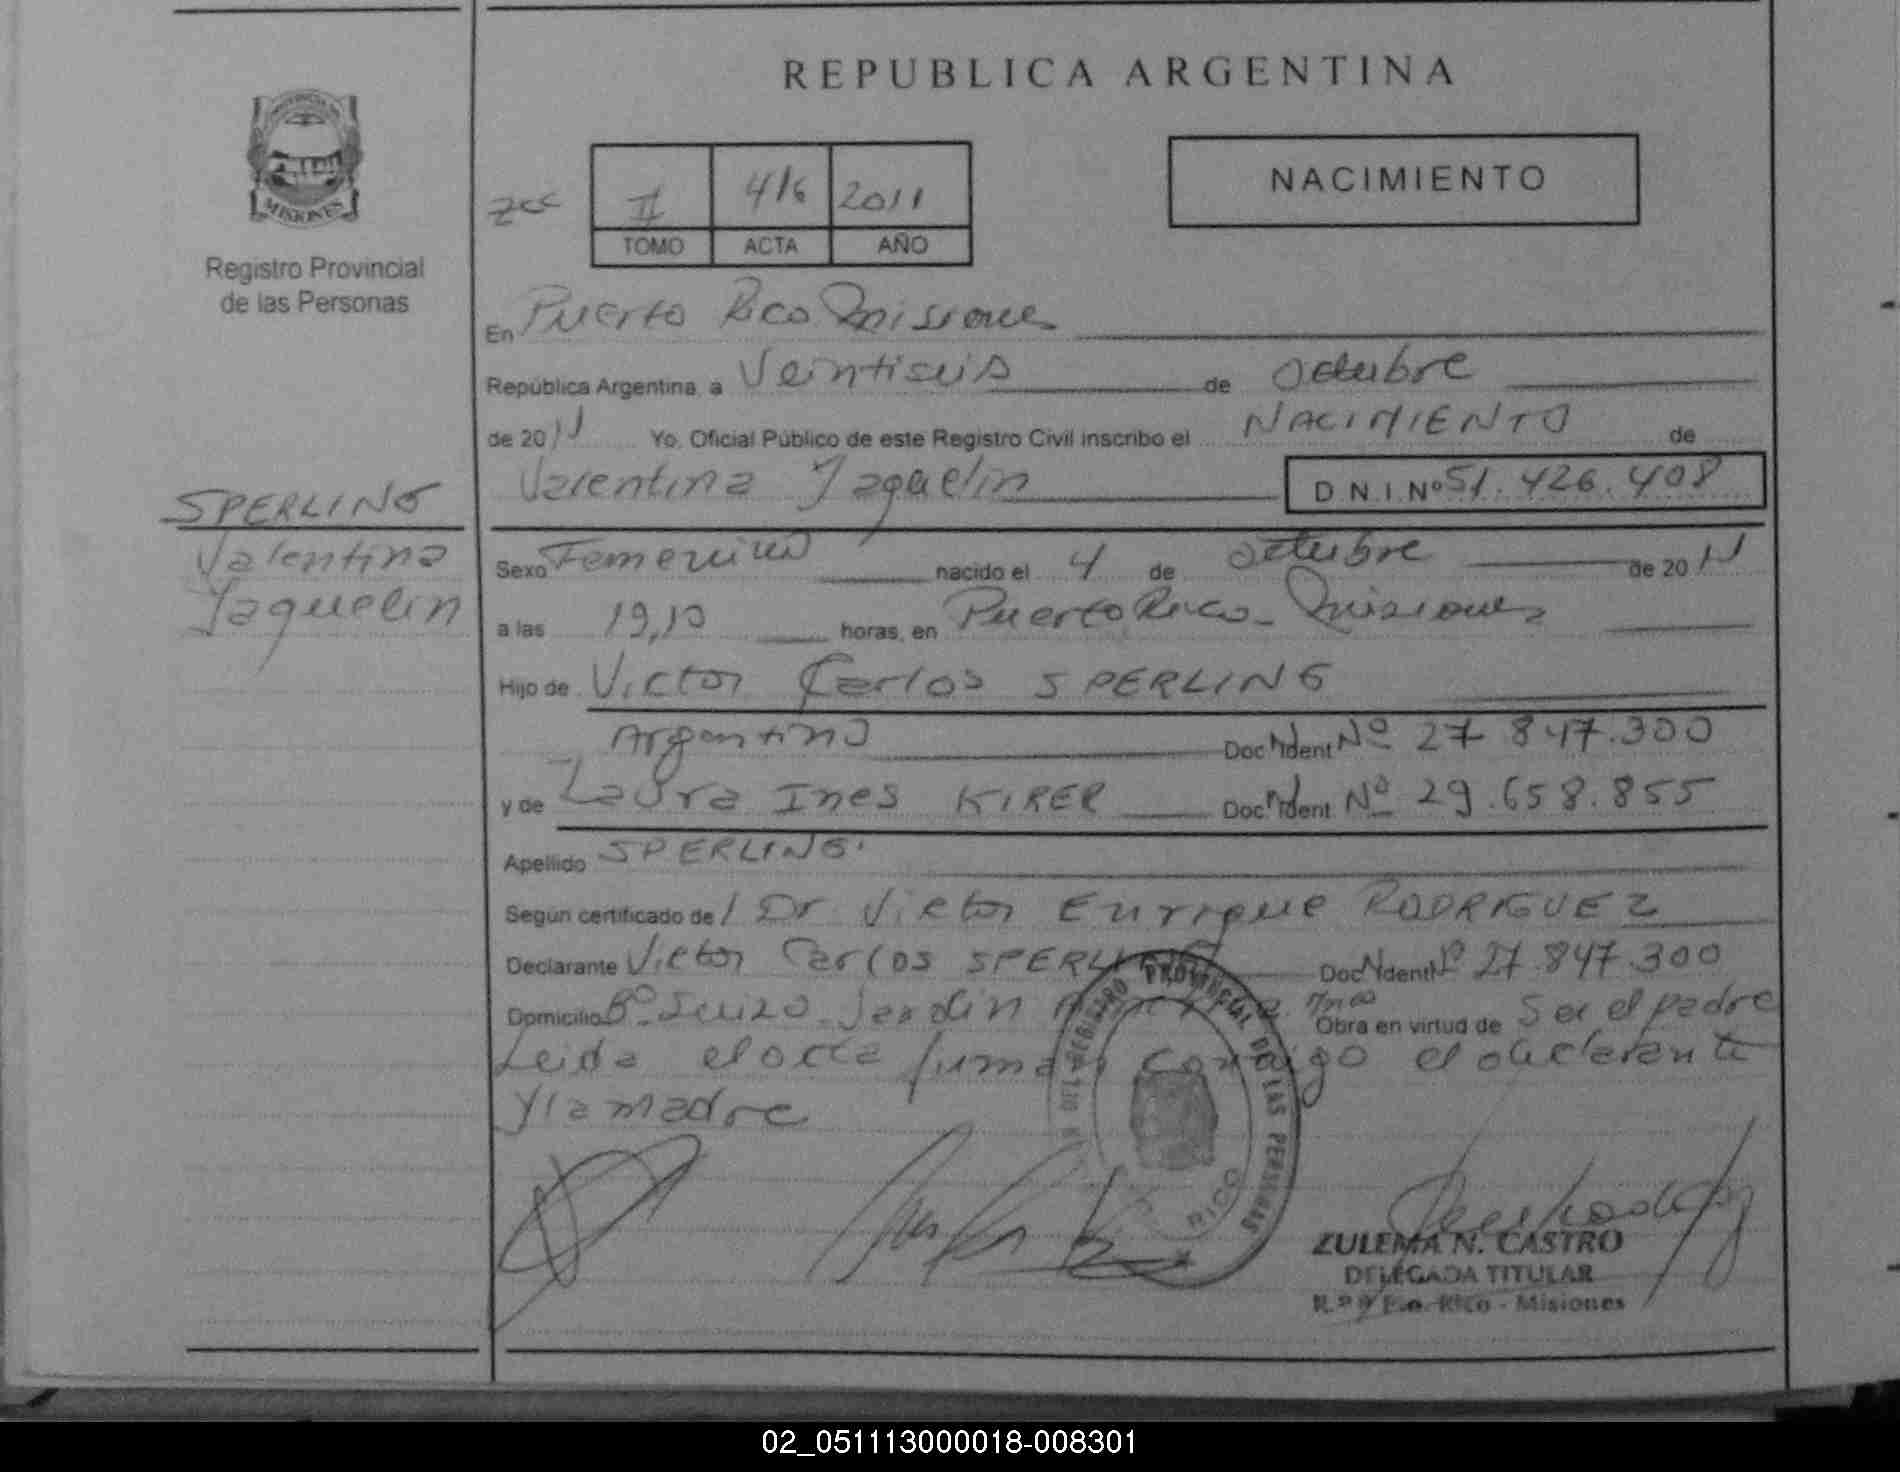 REPUBLICA ARGENTINA
MISIONES
Registro Provincial
de las Personas
NACIMIENTO
II 416 2011
TOMO ACTA AÑO
En Puerto Rico Misiones
República Argentina, a Veintiseis de Octubre
de 2011 Yo, Oficial Público de este Registro Civil inscribo el NACIMIENTO de
Valentina Yaquelin D.N.I. Nº 51.426.408
SPERLING
Valentina
Yaquelin
Sexo Femenino nacido el 4 de octubre de 2011
a las 19,10 horas, en Puerto Rico - Misiones
Hijo de Victor Carlos SPERLING
Argentino Doc. Ident Nº 27.847.300
y de Laura Ines KIRER Doc. Ident. Nº 29.658.855
Apellido SPERLING.
Según certificado de / Dr. Victor Enrique RODRIGUEZ
Declarante Victor Carlos SPERLING Doc. Ident Nº 27.847.300
Domicilio Bº Suizo Jardin Mnes Obra en virtud de Ser el padre
Leida el acta firman conmigo el declarante
y la madre
REGISTRO PROVINCIAL DE LAS PERSONAS
RICO
ZULEMA N. CASTRO
DELEGADA TITULAR
Rico - Misiones
02_051113000018-008301